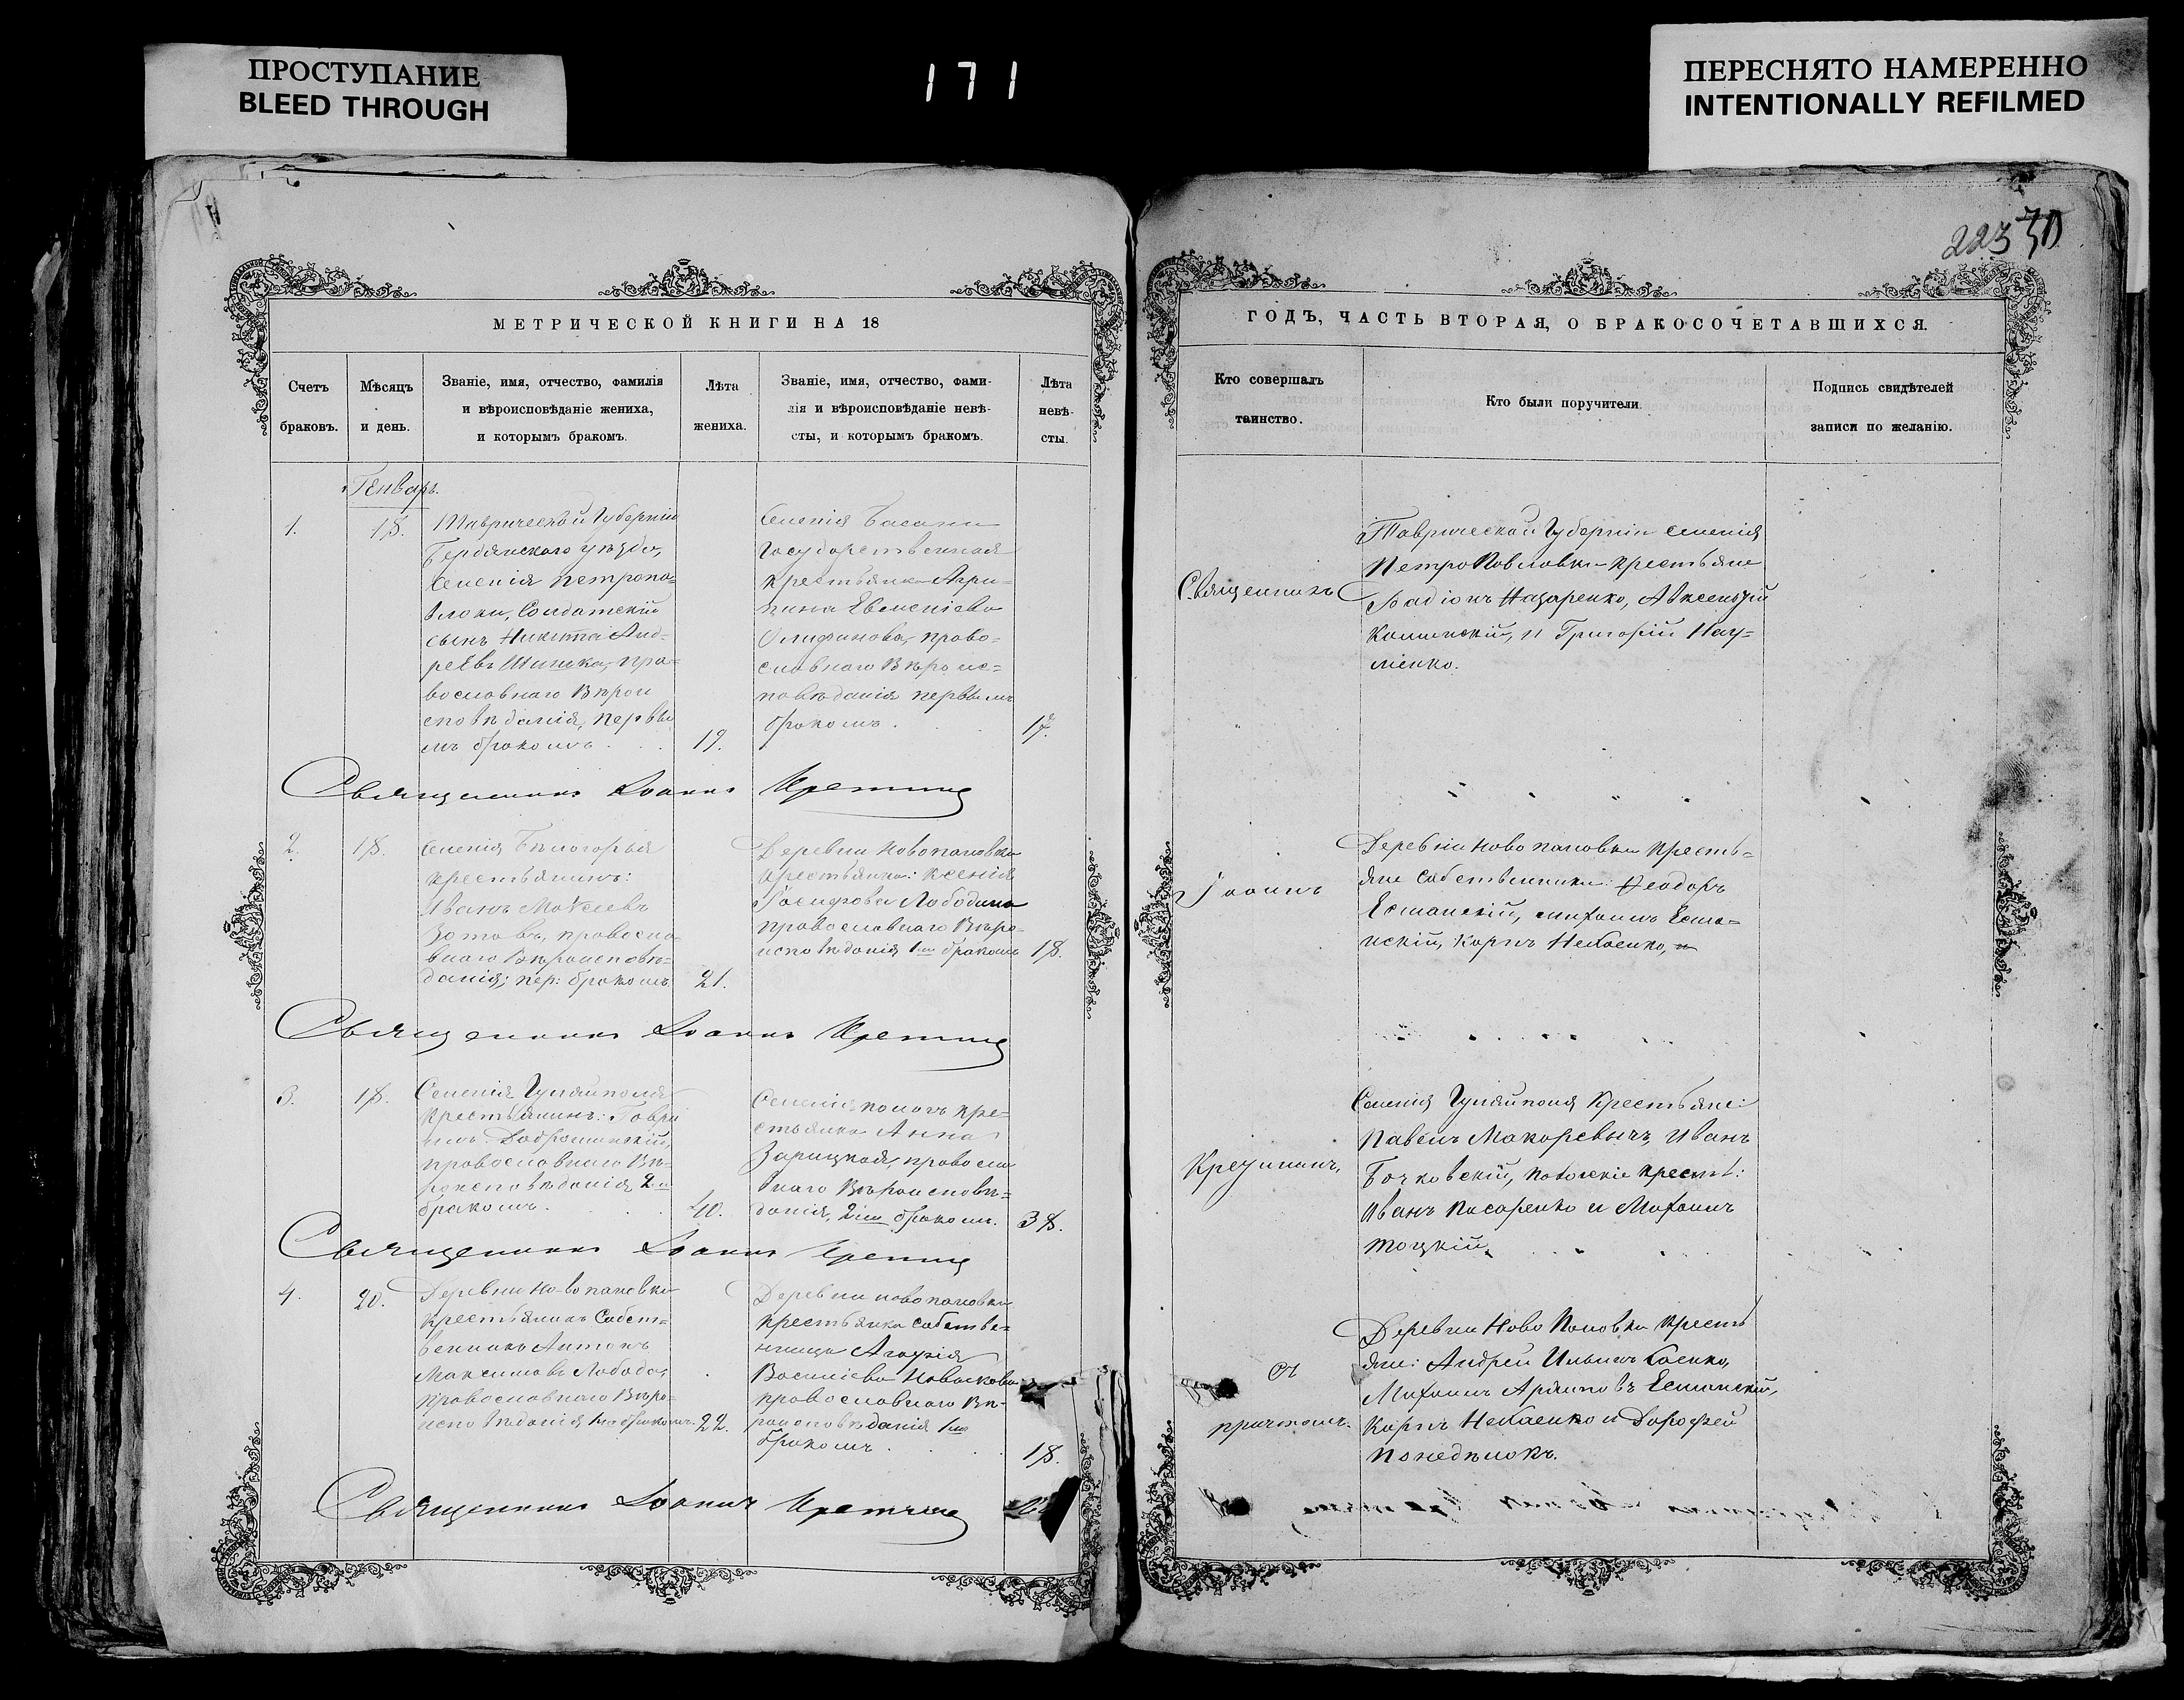 ПРОСТУПАНИЕ
BLEED THROUGH
171
ПЕРЕСНЯТО НАМЕРЕННО
INTENTIONALLY REFILMED
223
МЕТРИЧЕСКОЙ КНИГИ НА 18
Счетъ браковъ.
Мѣсяцъ и день.
Званіе, имя, отчество, фамилія
и вѣроисповѣданіе жениха,
и которымъ бракомъ.
Лѣта жениха.
Званіе, имя, отчество, фами-
лія и вѣроисповѣданіе невѣ-
сты, и которымъ бракомъ.
Лѣта невѣ-сты.
Генварь.
1.
18.
Таврической Губерніи
Бердянскаго уѣзда,
Селенія Петропа=
вловки, Солдатскій
сынъ Никита Анд=
реевъ Шишка, пра=
вославнаго вѣрои
сповѣданія, первы
мъ бракомъ
19.
Селенія Басани
Государственная
крестьянка Агри=
пина Евменіева
Олифинова, право=
славнаго вѣроис=
повѣданія первымъ
бракомъ.
17.
Священникъ Іоаннъ
2.
18.
Селенія Бѣлогорья
крестьянинъ:
Иванъ Моѵсеевъ
Зотовъ, правосла
внаго вѣроисповѣ=
данія; пер: бракомъ
21.
Деревни Новопановки
крестьянка: Ксенія
Іосифова Лободина
православнаго вѣро=
исповѣданія 1мъ бракомъ
18.
Священникъ Іоаннъ
3.
18.
Селенія Гуляйполя
крестьянинъ: Гаврі
илъ
православнаго вѣ=
роисповѣданія 2мъ
бракомъ.
40.
Селенія пологъ кре=
стьянка Анна
Зарицкая, правосла
внаго вѣроисповѣ=
данія, 2мъ бракомъ.
38.
Священникъ Іоаннъ
4.
20.
Деревни Новопановки
крестьянинъ Собст=
венникъ Антонъ
Максимовъ Лобода,
православнаго вѣро=
исповѣданія 1мъ бракомъ.
22.
Деревни новопановки
крестьянка собстве=
нница Агафія
Василіева Новакова
православнаго вѣ=
роисповѣданія 1мъ
бракомъ.
18.
Священникъ Іоаннъ
ГОДЪ, ЧАСТЬ ВТОРАЯ, О БРАКОСОЧЕТАВШИХСЯ.
Кто совершалъ
таинство.
Кто были поручители.
Подпись свидѣтелей
записи по желанію.
Священникъ
Таврической Губерніи селенія
Петропавловки крестьяне
Радіонъ Назаренко, Авксентій
и Григорій Нау=
менко.
Іоаннъ
Деревни Ново пановки кресть=
яне собственники: Ѳеодоръ
Есманскій, михаилъ Есма=
нскій, Карпъ Небаенко, и
Селенія Гуляйполя Крестьяне:
Павелъ Макаревичъ, Иванъ
Бочковскій, пологскіе крест:
Иванъ Писаренко и Михаилъ
Тоцкій.
съ
причтомъ.
Деревни Ново Пановки кресть
яне: Андрей
Михаилъ Есманскій,
Карпъ Небаенко и Дорофей
Понедѣлокъ.